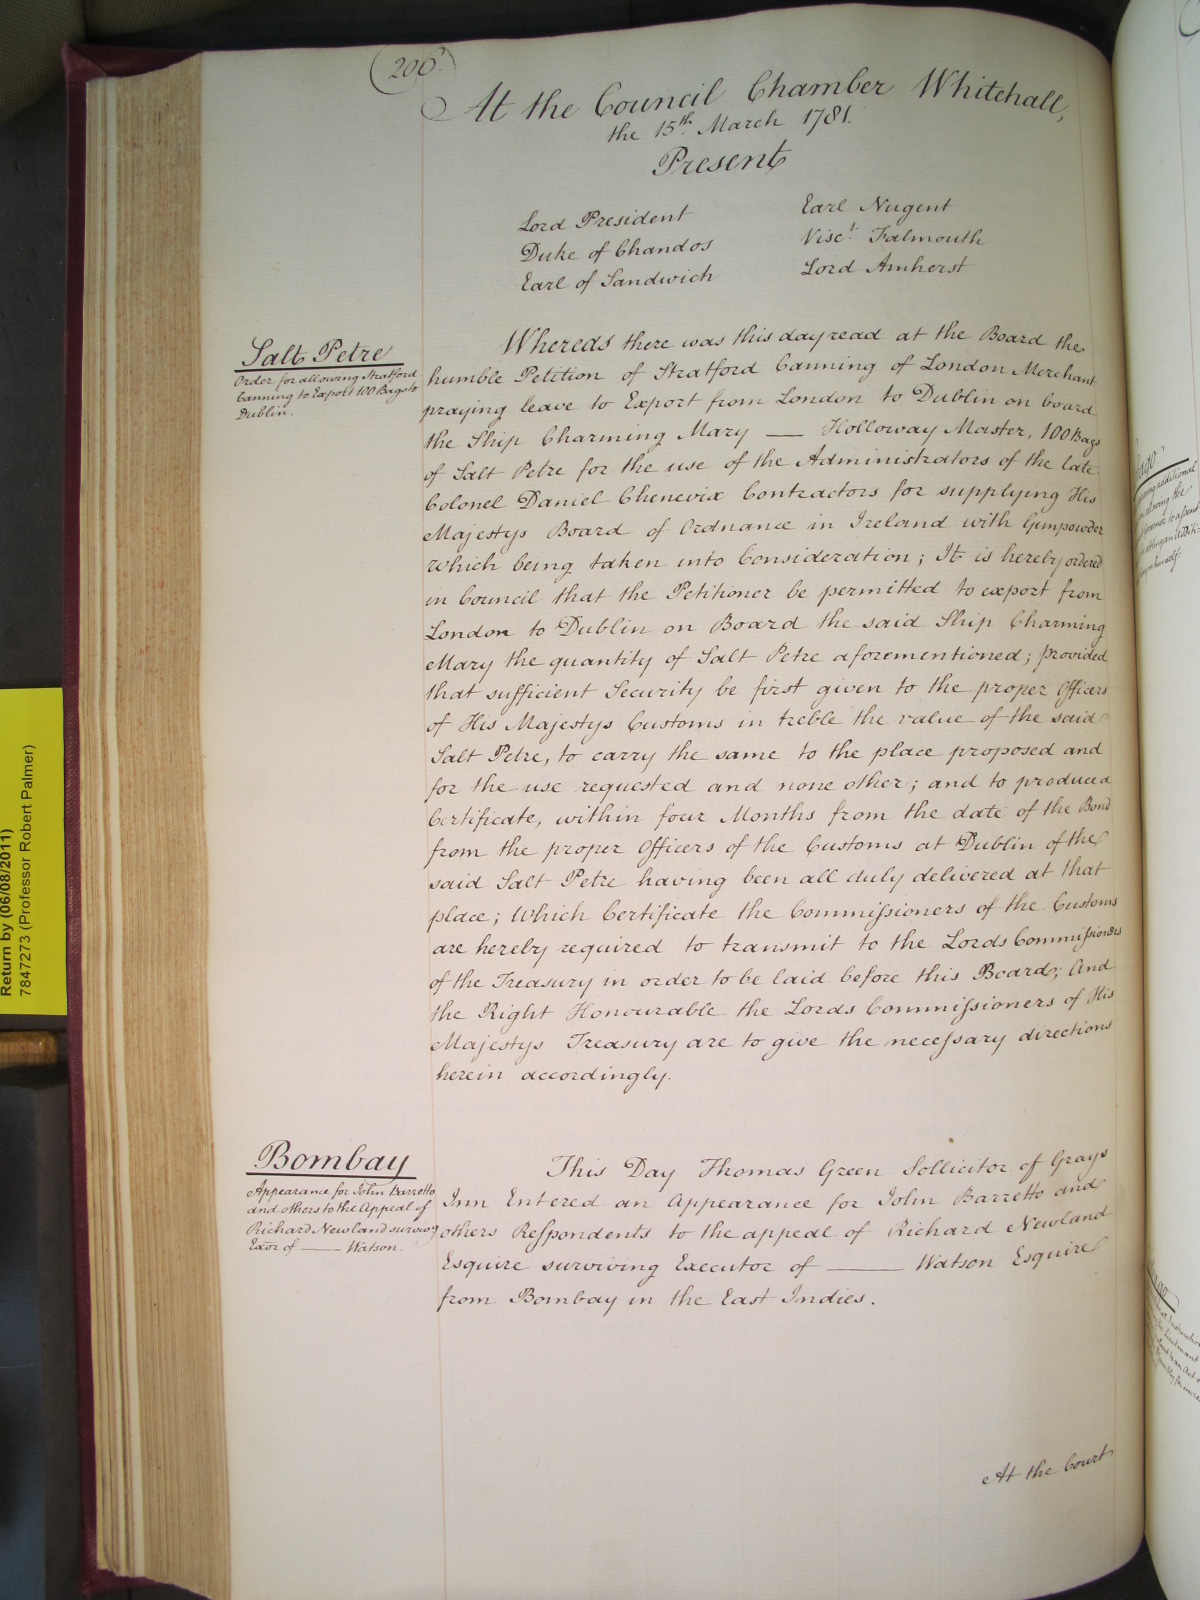 206
At the Council Chamber Whitehall,
the 15th March 1781.
Present
Lord President
Duke of Chandos
Earl of Sandwich
Earl Nugent
Visct. Falmouth
Lord Amherst
Salt Petre
Order for allowing Stratford
Canning to Export 100 Bags to
Dublin.
Whereas there was this day read at the Board the
humble Petition of Stratford Canning of London Merchant
praying leave to Export from London to Dublin on board
the Ship Charming Mary — Holloway Master, 100 Bags
of Salt Petre for the use of the Administrators of the late
Colonel Daniel Chenevix Contractors for supplying His
Majestys Board of Ordnance in Ireland with Gunpowder
which being taken into Consideration; It is hereby ordered
in Council that the Petitioner be permitted to export from
London to Dublin on Board the said Ship Charming
Mary the quantity of Salt Petre aforementioned; provided
that sufficient Security be first given to the proper Officers
of His Majestys Customs in treble the value of the said
Salt Petre, to carry the same to the place proposed and
for the use requested and none other; and to produce a
Certificate, within four Months from the date of the Bond
from the proper Officers of the Customs at Dublin of the
said Salt Petre having been all duly delivered at that
place; Which Certificate the Commissioners of the Customs
are hereby required to transmit to the Lords Commissioners
of the Treasury in order to be laid before this Board; And
the Right Honourable the Lords Commissioners of His
Majestys Treasury are to give the necessary directions
herein accordingly.
Bombay
Appearance for John Barretto
and others to the Appeal of
Richard Newland surviving
Exor of — Watson.
This Day Thomas Green Sollicitor of Grays
Inn Entered an Appearance for John Barretto and
others Respondents to the appeal of Richard Newland
Esquire surviving Executor of — Watson Esquire
from Bombay in the East Indies.
At the Court
Return by (06/08/2011)
7847273 (Professor Robert Palmer)